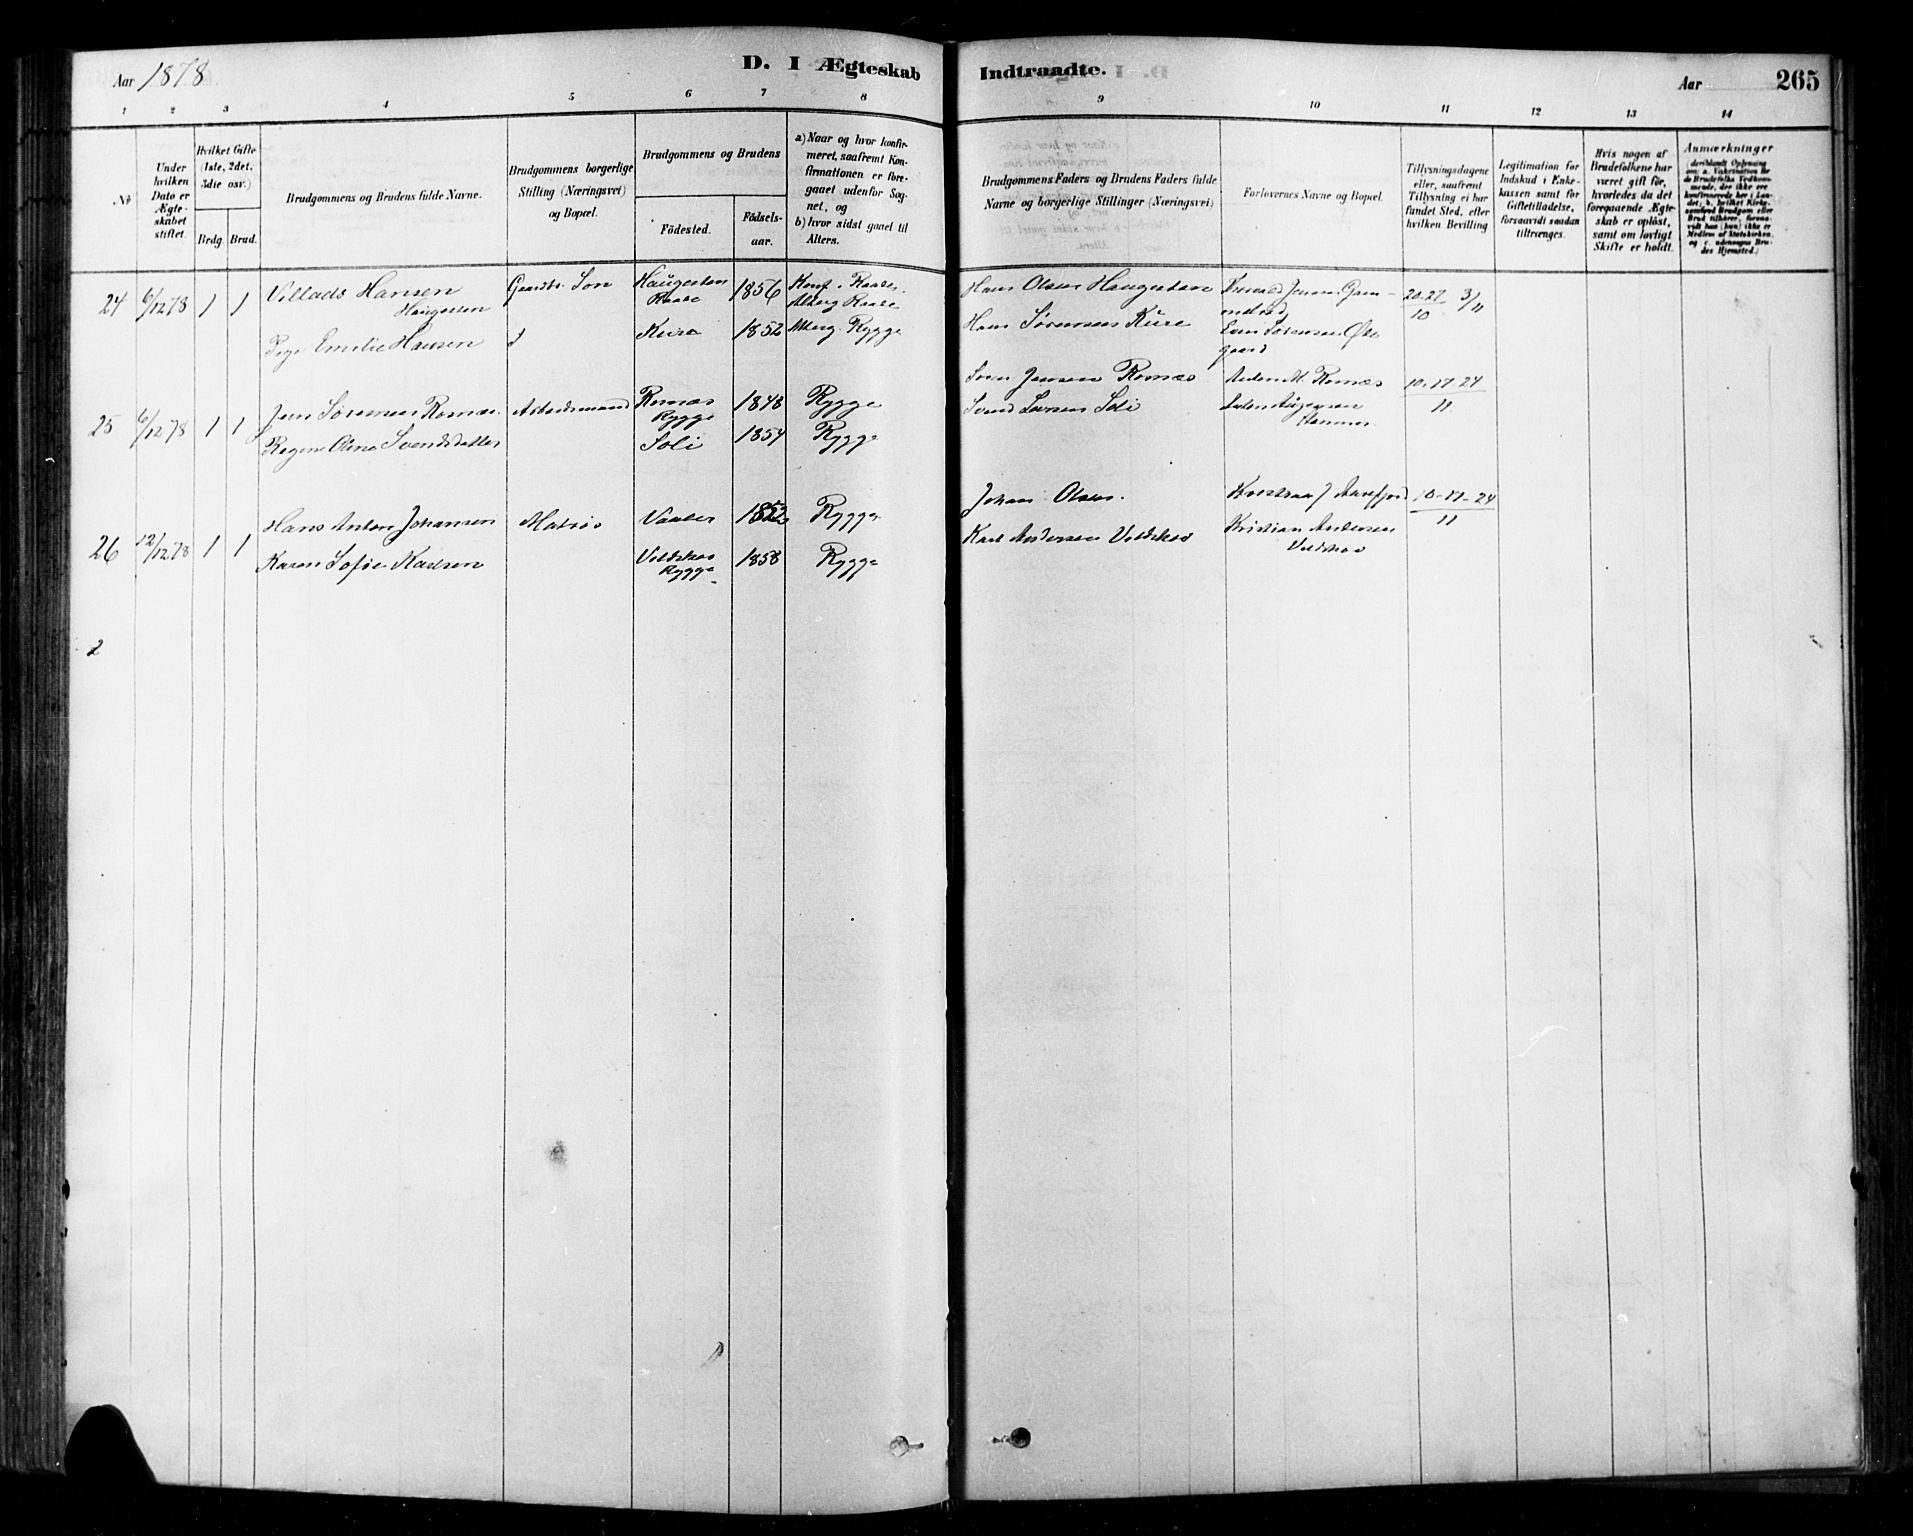 Aar 1878
D. I Ægteskab
Indtraadte.
Aar
265
1 2 3 4 5 6 7 8 9 10 11 12 13 14
No
Under hvilken Dato er Ægteskabet stiftet.
Hvilket Gifte (1ste, 2det, 3die osv.)
Brdg. Brud.
Brudgommens og Brudens fulde Navne.
Brudgommens borgerlige Stilling (Næringsvei) og Bopæl.
Brudgommens og Brudens
Födested.
Födselsaar.
a) Naar og hvor konfirmeret, saafremt Konfirmationen er foregaaet udenfor Sognet, og
b) hvor sidst gaaet til Alters.
Brudgommens Faders og Brudens Faders fulde Navne og borgerlige Stillinger (Næringsvei)
Forlovernes Navne og Bopæl.
Tillysningsdagene eller, saafremt Tillysning ei har fundet Sted, efter hvilken Bevilling
Legitimation for Indskud i Enkekassen samt for Giftetilladelse, forsaavidt saadan tiltrænges.
Hvis nogen af Brudefolkene har været gift för, hvorledes da det foregaaende Ægteskab er oplöst, samt om lovligt Skifte er holdt.
Anmærkninger
24 6/12 78 1 1 Villads Hansen Haugesten Gaardbr. Søn Haugesten Raade 1856 Konf. Raade. Altberg Raade Hans Olsen Haugesten 20-27/10 3/11
Emilie Hansen Kure 1852 Altberg Rygge Hans Sørensen Kure
25 6/12 78 1 1 Jens Sørensen Romæs Arbeidsmand Romæs Rygge 1848 Rygge Søren Jensen Romæs Anders M. Romæs 10-17-24/11
Regine Olina Svendsdatter Soli 1854 Rygge Svend Larsen Soli Hammer
26 12/12 78 1 1 Hans Anton Johansen Matros Vaaler 1852 Rygge Johan Olsen. 10-17-24/11
Karen Sofie Karlsen Veldskov Rygge 1858 Rygge Karl Andersen Veldskov Kristian Andersen Veldskov
2